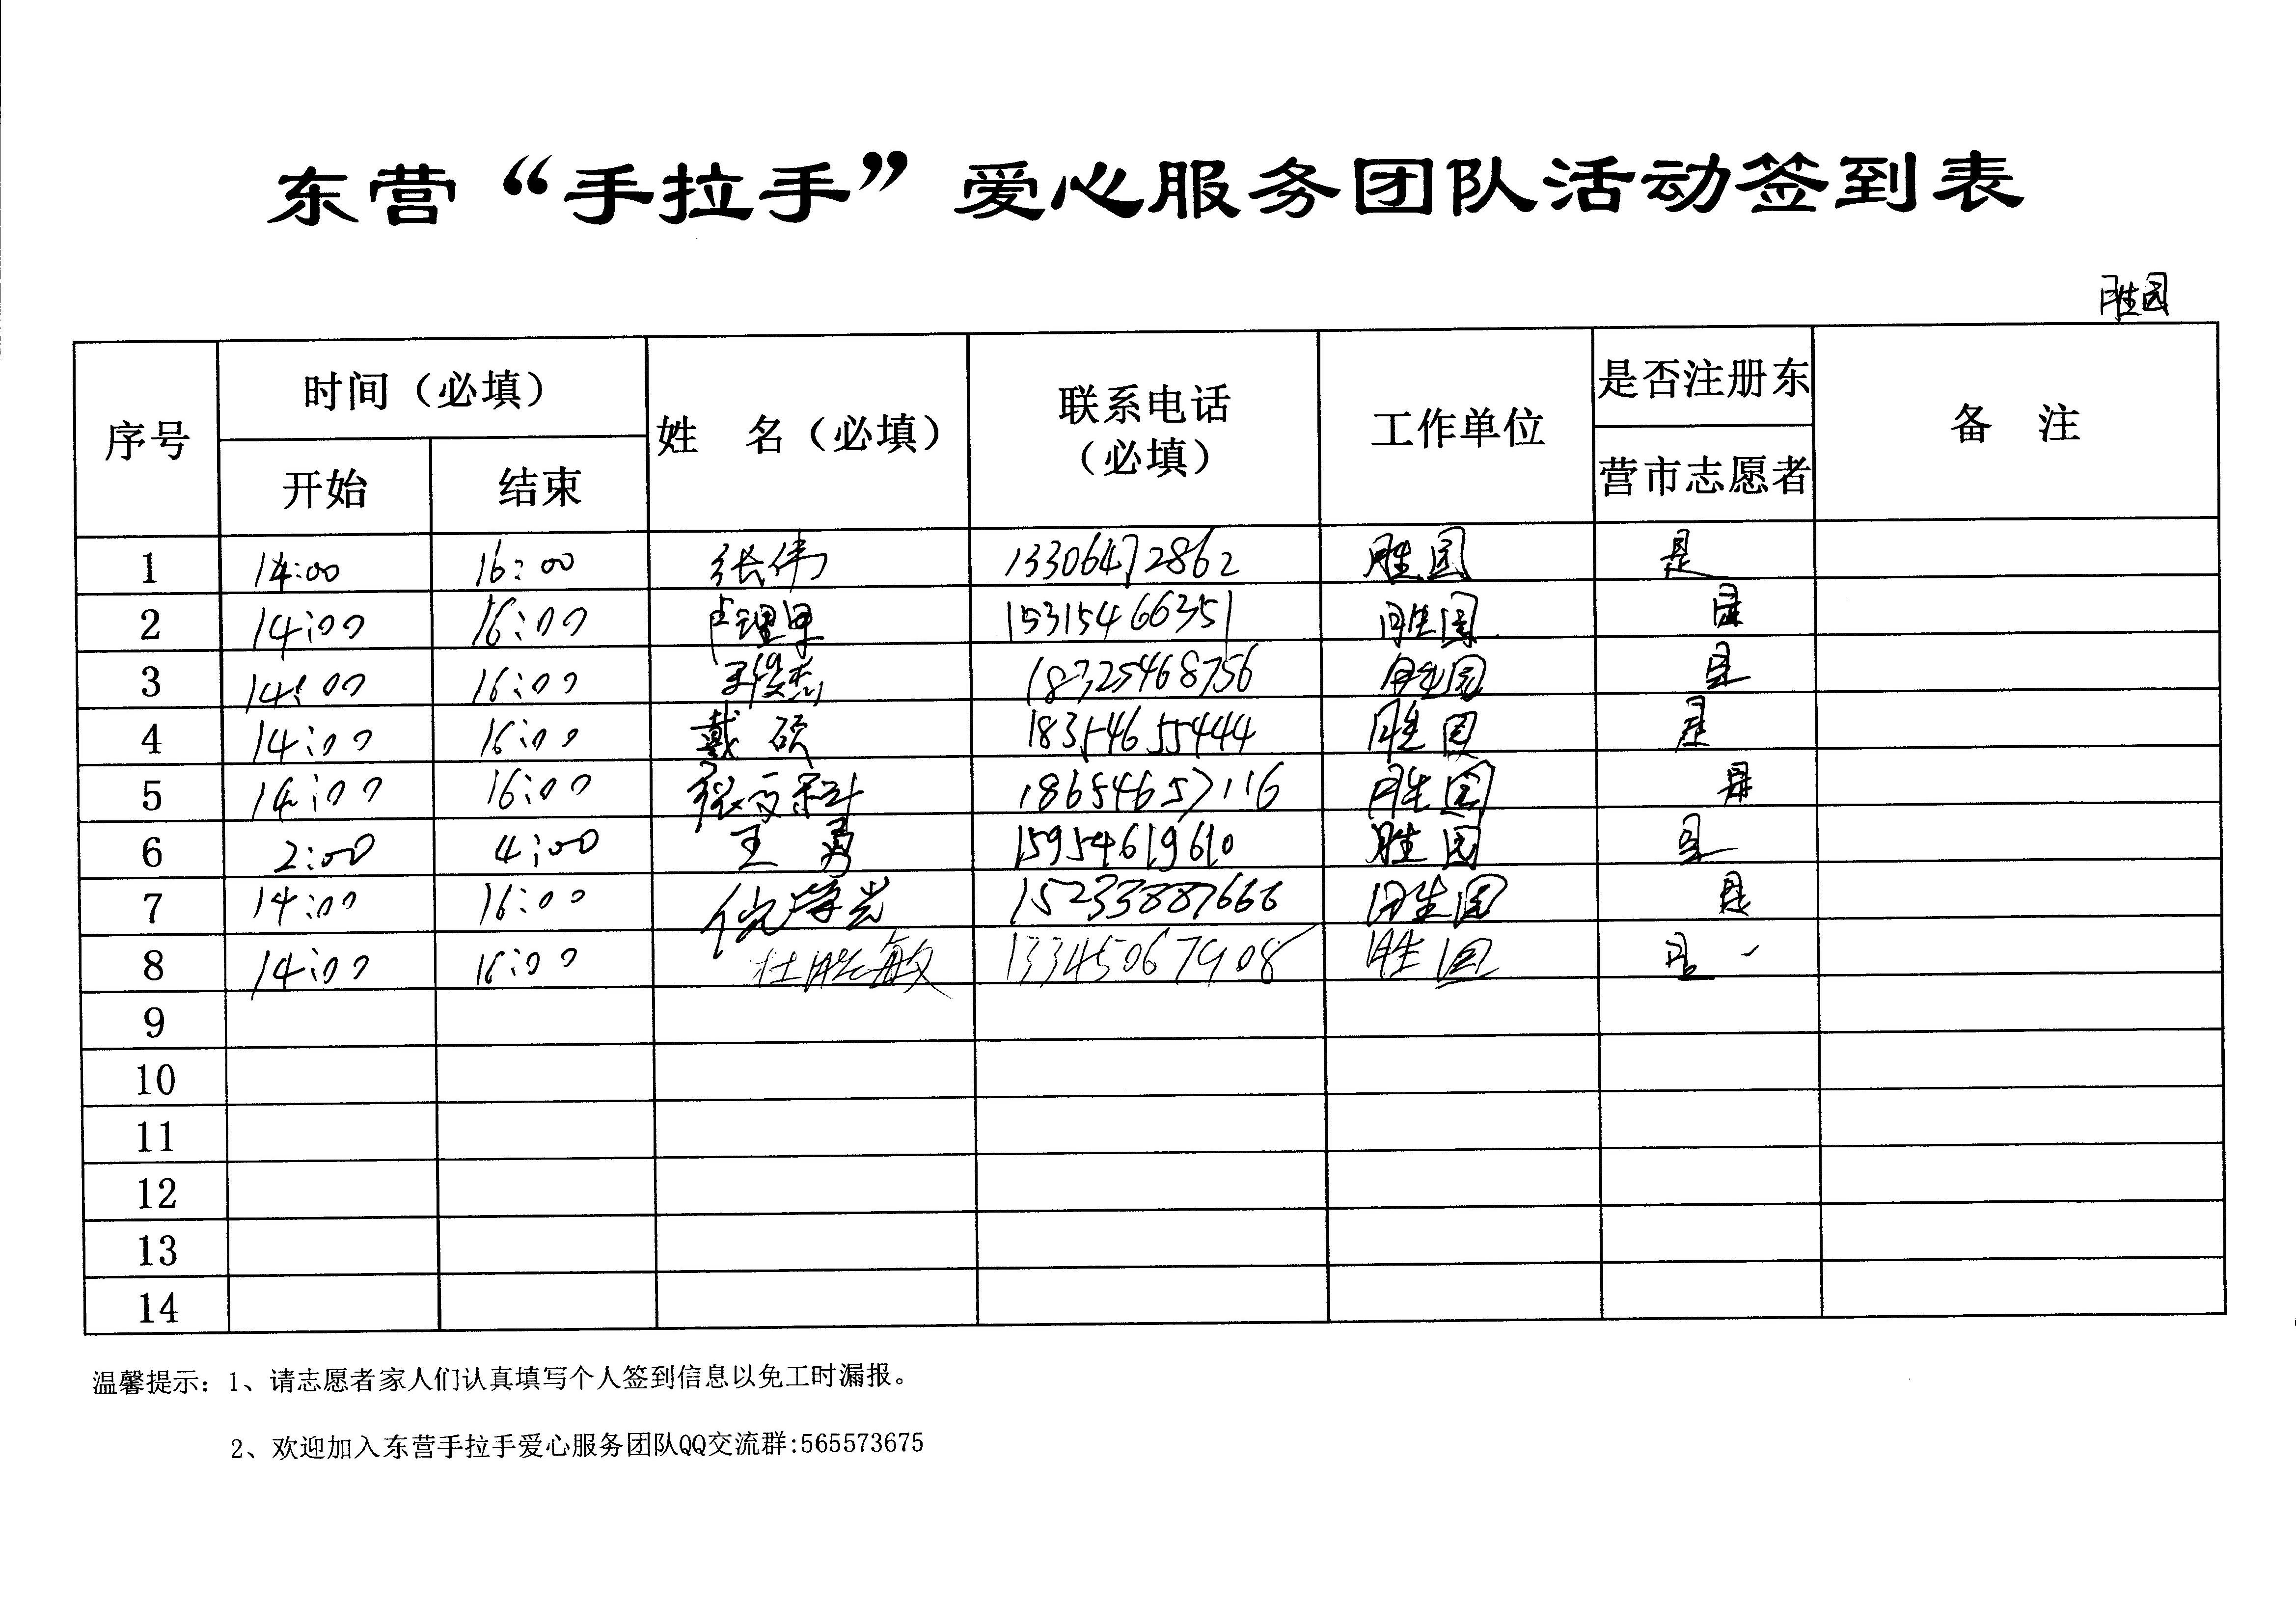 东营“手拉手”爱心服务团队活动签到表
胜园
序号 时间（必填） 姓 名（必填） 联系电话（必填） 工作单位 是否注册东营市志愿者 备 注
开始 结束
1 14:00 16:00 张伟 13306472862 胜园 是
2 14:00 16:00 15315466351 胜园 是
3 14:00 16:00 王俊杰 18725468756 胜园 是
4 14:00 16:00 戴硕 18354655444 胜园 是
5 14:00 16:00 张文 18654657116 胜园 是
6 2:00 4:00 王勇 15954619610 胜园 是
7 14:00 16:00 倪学光 15233887666 胜园 是
8 14:00 16:00 杜胜敏 13345067908 胜园 是
9
10
11
12
13
14
温馨提示：1、请志愿者家人们认真填写个人签到信息以免工时漏报。
2、欢迎加入东营手拉手爱心服务团队QQ交流群:565573675